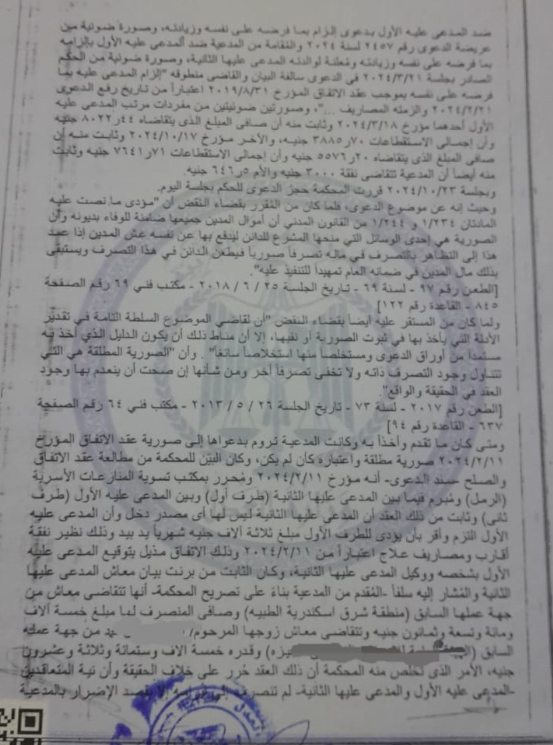 ضد المدعى عليه الأول بدعوى إلزام بما فرضه على نفسه وزيادته، وصورة ضوئية من
عريضة الدعوى رقم ٢٤٥٧ لسنة ٢٠٢٤ والمقامة من المدعية ضد المدعى عليه الأول بإلزامه
بما فرضه على نفسه وزيادته ومُعلنة لوالدته المدعى عليها الثانية، وصورة ضوئية من الحكم
الصادر بجلسة ٢٠٢٤/٣/٢١ في الدعوى سالفة البيان والقاضي منطوقه "إلزام المدعى عليه بما
فرضه على نفسه بموجب عقد الاتفاق المؤرخ ٢٠١٩/٨/٣١ اعتباراً من تاريخ رفع الدعوى
٢٠٢٤/٢/٢١ والزمته المصاريف ..."، وصورتين ضوئيتين من مفردات مرتب المدعى عليه
الأول أحدهما مؤرخ ٢٠٢٤/٣/١٨ وثابت منه أن صافى المبلغ الذى يتقاضاه ٨٠٢٢,٤٤ جنيه
وأن إجمالي الاستقطاعات ٣٨٨٥,٧٠ جنيه، والآخر مؤرخ ٢٠٢٤/١٠/١٧ وثابت منه إن
صافى المبلغ الذى يتقاضاه ٥٥٧٦,٢٠ جنيه وأن إجمالي الاستقطاعات ٧٦٤١,٧١ جنيه وثابت
منه أيضاً أن المدعية تتقاضى نفقة ٣٠٠٠ جنيه والأم ٦٤٦,٥ جنيه.
وبجلسة ٢٠٢٤/١٠/٢٣ قررت المحكمة حجز الدعوى للحكم بجلسة اليوم.
وحيث إنه عن موضوع الدعوى، فلما كان من المُقرر بقضاء النقض أن "مؤدى ما نصت عليه
المادتان ١/٢٣٤ و ١/٢٤٤ من القانون المدني أن أموال المدين جميعها ضامنة للوفاء بديونه وأن
الصورية هي إحدى الوسائل التي منحها المشرع للدائن ليدفع بها عن نفسه غش المدين إذا عمد
هذا إلى التظاهر بالتصرف في ماله تصرفاً صورياً فيطعن الدائن في هذا التصرف ويستبقى
بذلك مال المدين في ضمانه العام تمهيداً للتنفيذ عليه".
[الطعن رقم ٩٧ - لسنة ٦٩ - تاريخ الجلسة ٢٥ / ٦ / ٢٠١٨ - مكتب فني ٦٩ رقم الصفحة
٨٤٥ - القاعدة رقم ١٢٢]
ولما كان من المستقر عليه أيضاً بقضاء النقض "أن لقاضي الموضوع السلطة التامة في تقدير
الأدلة التي يأخذ بها في ثبوت الصورية أو نفيها، إلا أن مناط ذلك أن يكون الدليل الذي أخذ به
مستمداً من أوراق الدعوى ومستخلصاً منها استخلاصاً سائغاً". وأن "الصورية المطلقة هي التي
تتناول وجود التصرف ذاته ولا تخفى تصرفاً آخر ومن شأنها إن صحت أن ينعدم بها وجود
العقد في الحقيقة والواقع"
[الطعن رقم ٢٠١٧ - لسنة ٧٣ - تاريخ الجلسة ٢٦ / ٥ / ٢٠١٣ - مكتب فني ٦٤ رقم الصفحة
٦٣٧ - القاعدة رقم ٩٤]
ومتى كان ما تقدم وأخذاً به وكانت المدعية تروم بدعواها إلى صورية عقد الاتفاق المؤرخ
٢٠٢٤/٢/١١ صورية مطلقة واعتباره كأن لم يكن، وكان البيّن للمحكمة من مطالعة عقد الاتفاق
والصلح -سند الدعوى- أنه مؤرخ ٢٠٢٤/٢/١١ ومُحرر بمكتب تسوية المنازعات الأسرية
(الرمل) ومُبرم فيما بين المدعى عليها الثانية (طرف أول) وبين المدعى عليه الأول (طرف
ثانى) وثابت من ذلك العقد أن المدعى عليها الثانية ليس لها أى مصدر دخل وأن المدعى عليه
الأول التزم وأقر بأن يؤدى للطرف الأول مبلغ ثلاثة ألاف جنيه شهرياً يد بيد وذلك نظير نفقة
أقارب ومصاريف علاج اعتباراً من ٢٠٢٤/٢/١١ وذلك الاتفاق مذيل بتوقيع المدعى عليه
الأول بشخصه ووكيل المدعى عليها الثانية، وكان الثابت من برنت بيان معاش المدعى عليها
الثانية والمُشار إليه سلفاً -المُقدم من المدعية بناءً على تصريح المحكمة- أنها تتقاضى معاش من
جهة عملها السابق (منطقة شرق اسكندرية الطبيه) وصافى المنصرف لها مبلغ خمسة ألاف
ومائة وتسعة وثمانون جنيه وتتقاضى معاش زوجها المرحوم/ من جهة عمله
السابق ( وقدره خمسة الاف وستمائة وثلاثة وعشرون
جنيه، الأمر الذى تخلص منه المحكمة أن ذلك العقد حُرر على خلاف الحقيقة وأن نية المتعاقدين
-المدعى عليه الأول والمدعى عليها الثانية- لم تنصرف إلى إلا بقصد الإضرار بالمدعية